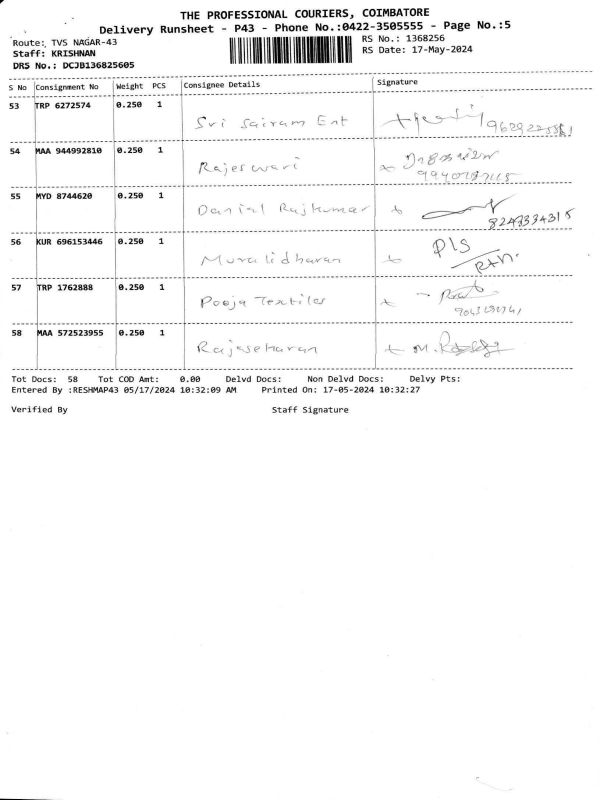 THE PROFESSIONAL COURIERS, COIMBATORE
Delivery Runsheet - P43 - Phone No.:0422-3505555 - Page No.:5
Route: TVS NAGAR-43 RS No.: 1368256
Staff: KRISHNAN RS Date: 17-May-2024
DRS No.: DCJB136825605
S No Consignment No Weight PCS Consignee Details Signature
53 TRP 6272574 0.250 1 Sri Sairam Ent
54 MAA 944992810 0.250 1 Rajeswari
55 MYD 8744620 0.250 1 Danial Rajkumar 8248334315
56 KUR 696153446 0.250 1 Muralidharan Pls
Rtn.
57 TRP 1762888 0.250 1 Pooja Textiles
58 MAA 572523955 0.250 1 Rajasekaran M.
Tot Docs: 58 Tot COD Amt: 0.00 Delvd Docs: Non Delvd Docs: Delvy Pts:
Entered By :RESHMAP43 05/17/2024 10:32:09 AM Printed On: 17-05-2024 10:32:27
Verified By Staff Signature